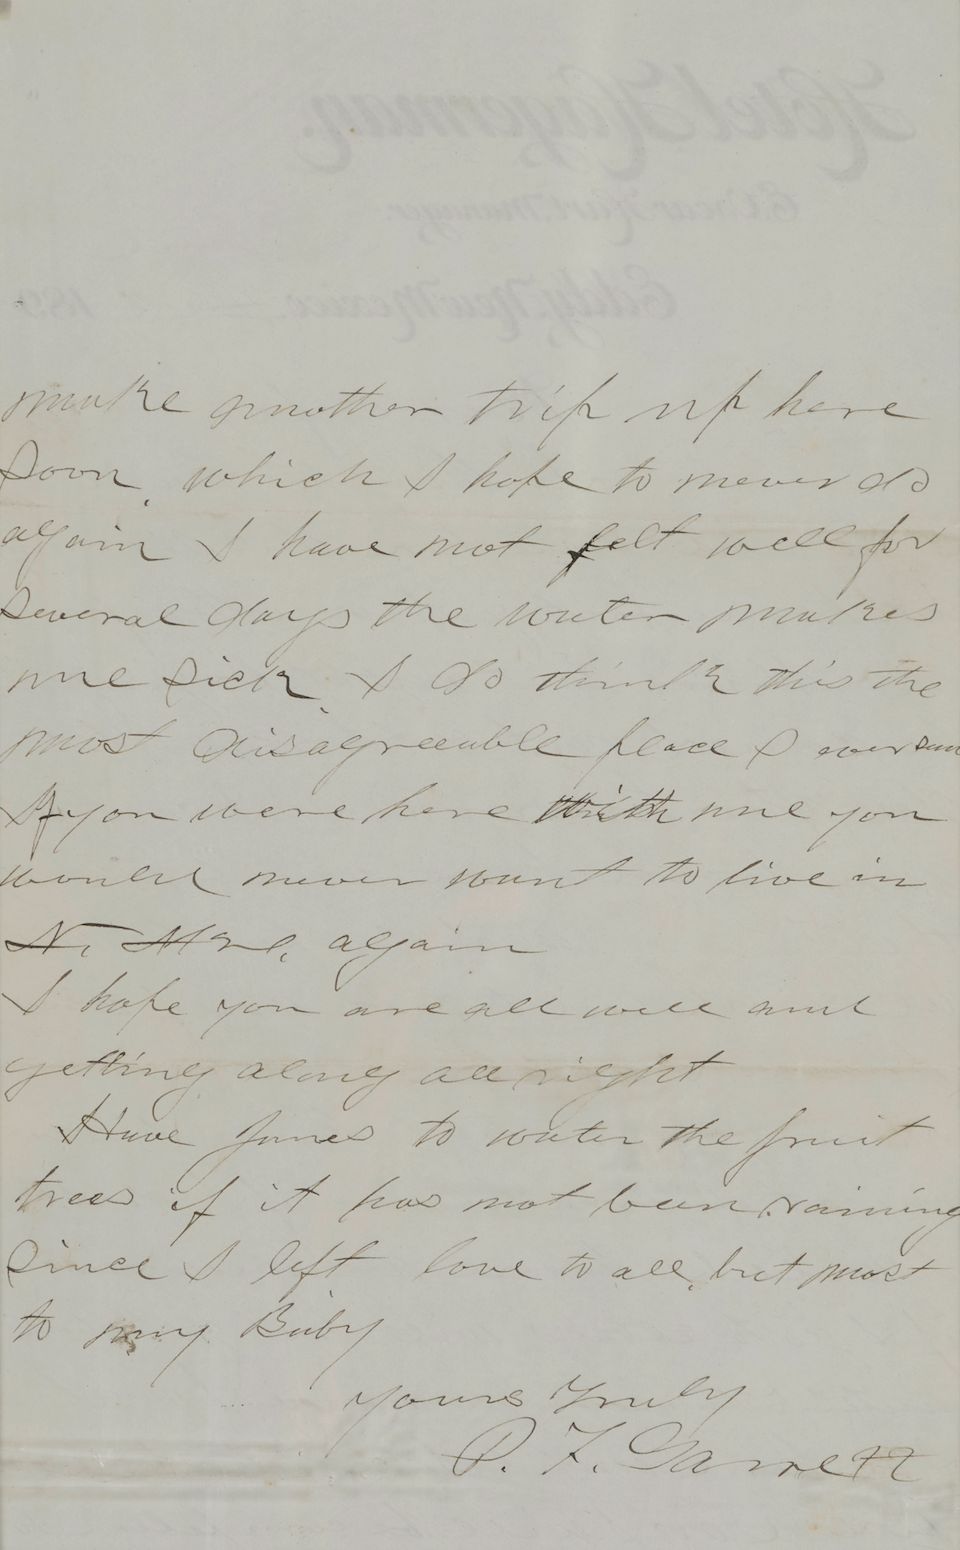 make another trip up here
soon, which I hope to never do
again I have not felt well for
several days the water makes
me sick, I do think this the
most disagreeable place I ever saw
If you were here with me you
would never want to live in
N. Mex. again
I hope you are all well and
getting along all right
Have James to water the fruit
trees if it has not been raining
since I left love to all, but most
to my Baby
Yours Truly
P. F. Garrett